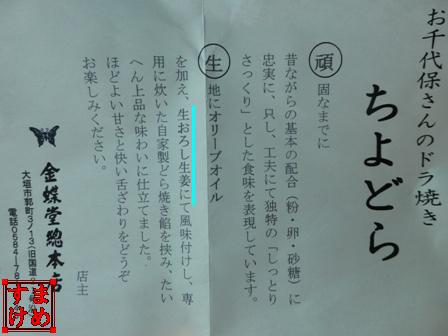 お千代保さんのドラ焼き
ちよどら
頑固なまでに
昔ながらの基本の配合（粉・卵・砂糖）に
忠実に、只し、工夫にて独特の「しっとり
さっくり」とした食味を表現しています。
生地にオリーブオイル
を加え、生おろし生姜にて風味付けし、専
用に炊いた自家製どら焼き餡を挟み、たい
へん上品な味わいに仕立てました。
ほどよい甘さと快い舌ざわりをどうぞ
お楽しみください。
店主
金蝶堂總本店
大垣市郭町3ノ13（旧国道
電話0584―78
まめ
すけ